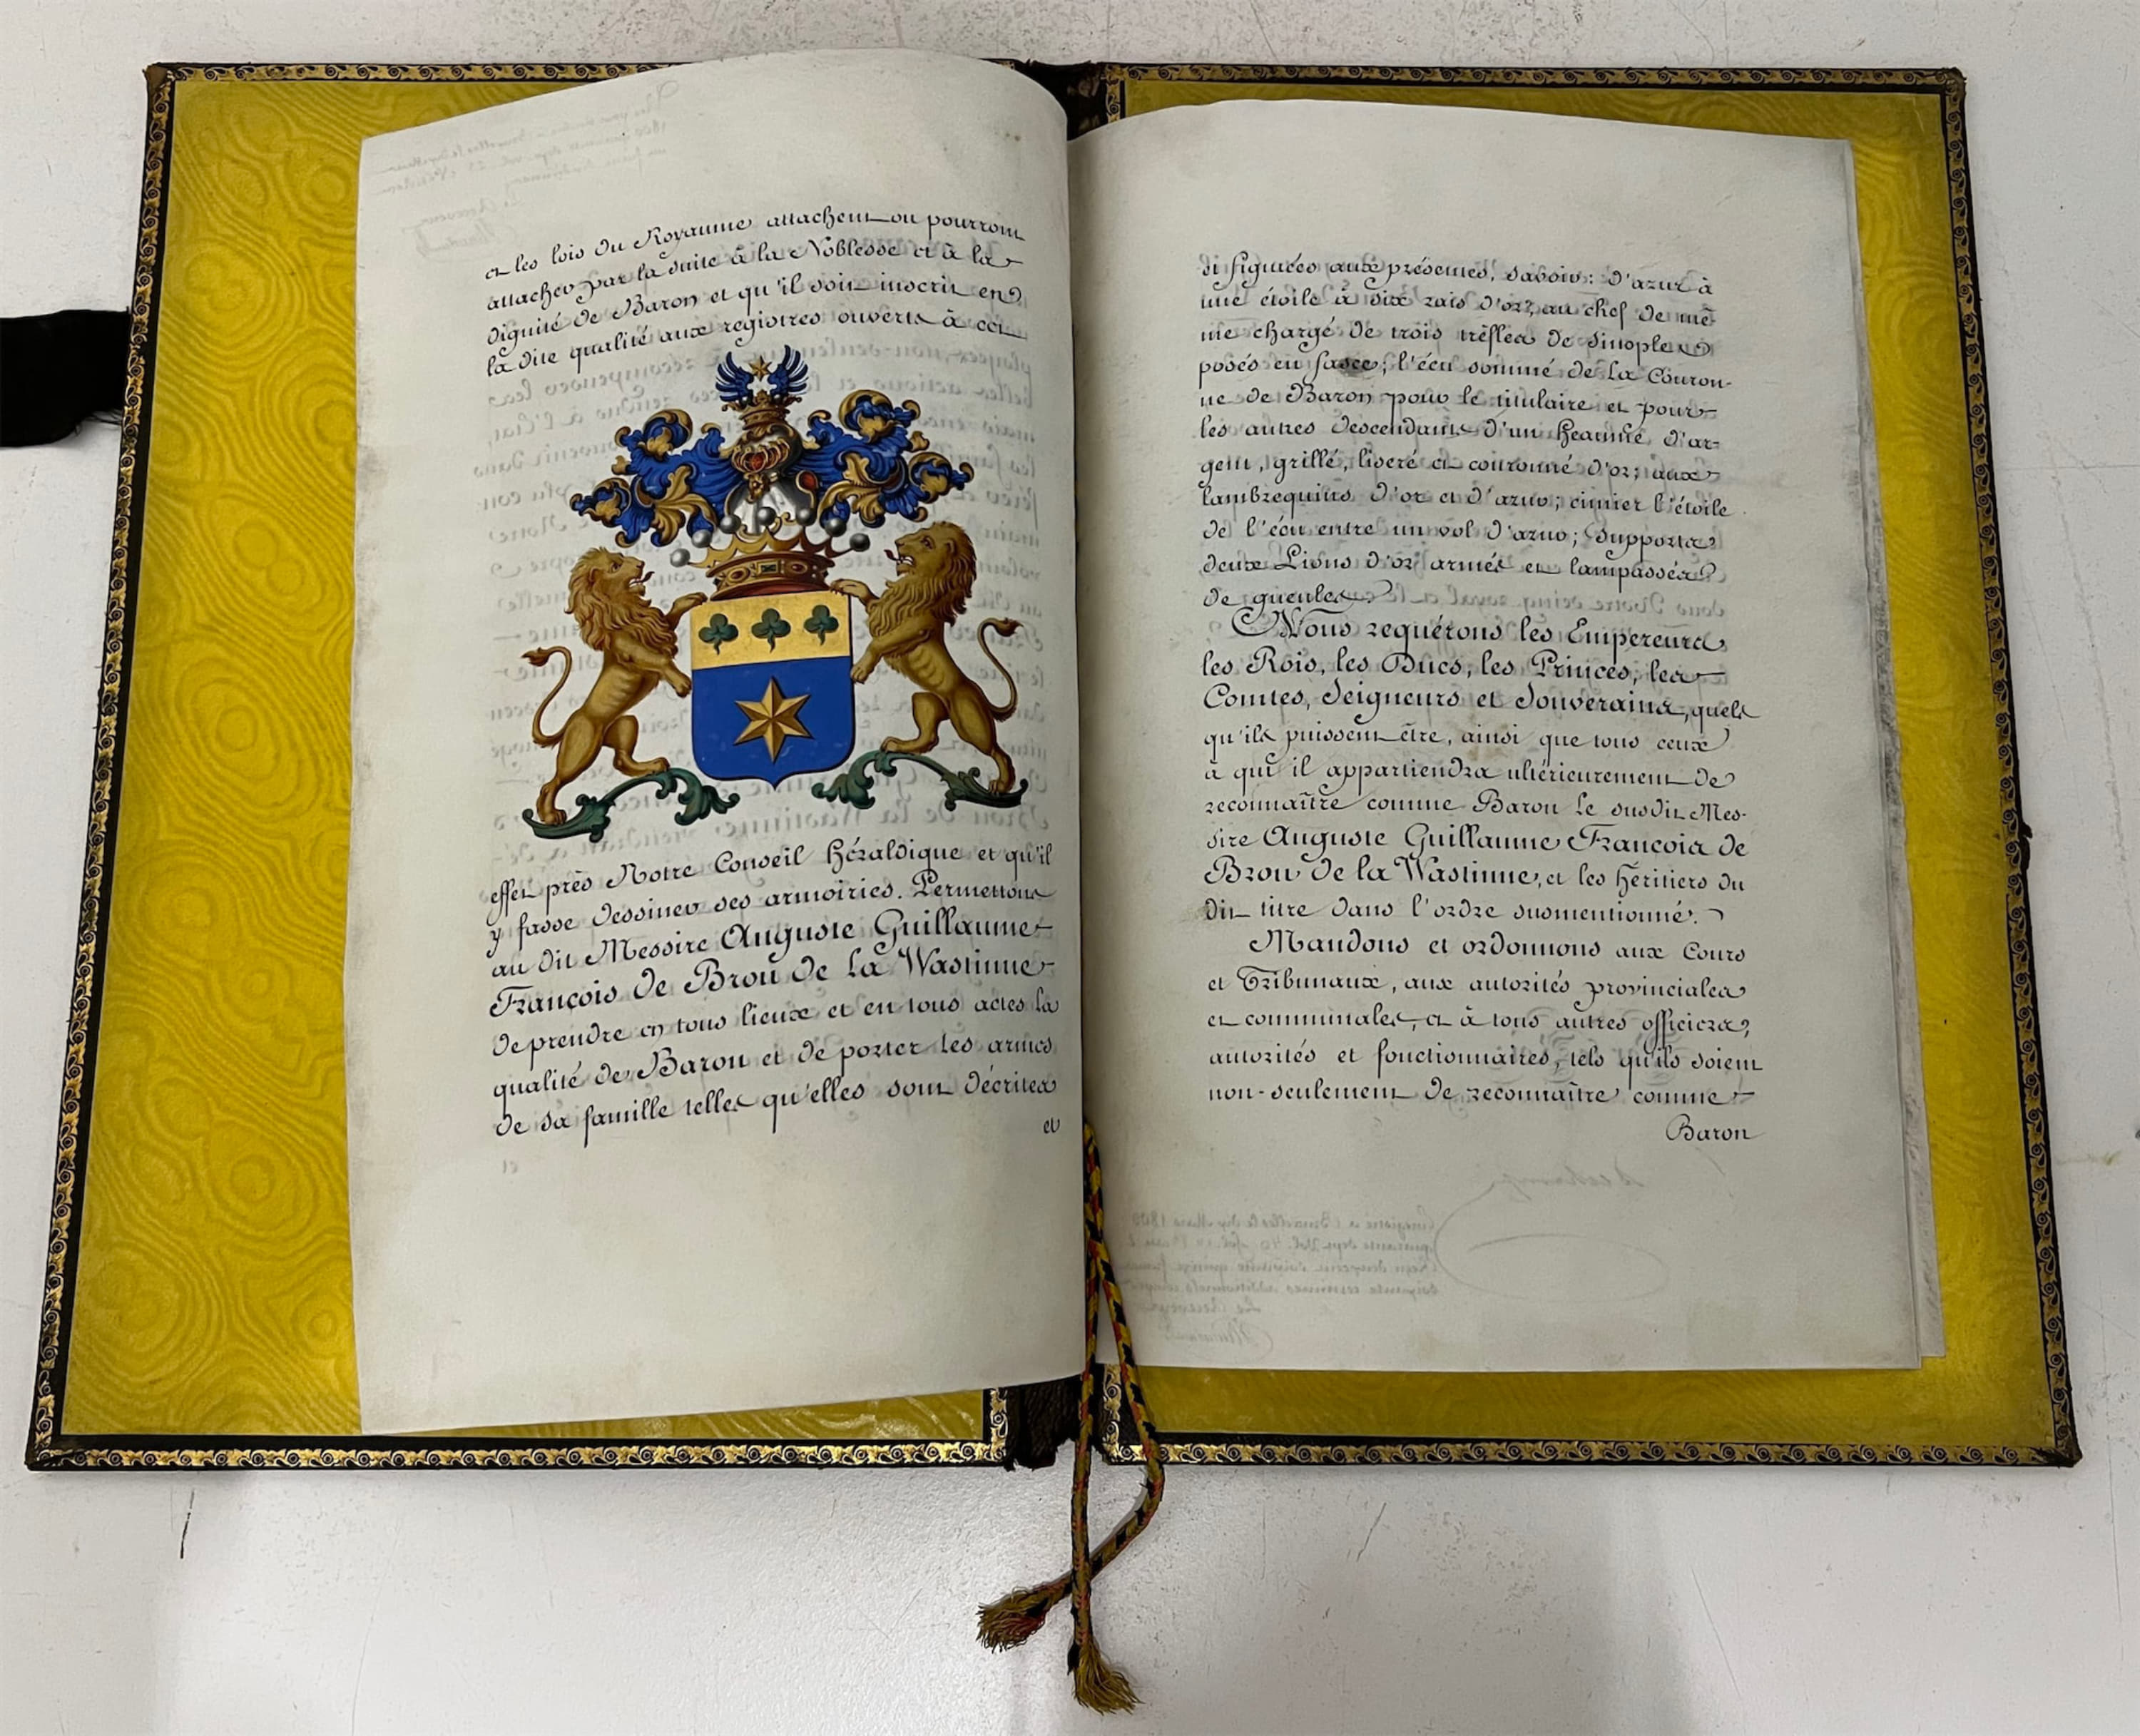 et les lois du Royaume attachent ou pourront
attacher par la suite à la Noblesse et à la
dignité de Baron et qu'il soit inscrit en
la dite qualité aux registres ouverts à cet
effet près Notre Conseil héraldique et qu'il
y fasse dessiner ses armoiries. Permettons
au dit Messire Auguste Guillaume
François de Brou de la Wastinne
de prendre en tous lieux et en tous actes la
qualité de Baron et de porter les armes
de sa famille telles qu'elles sont décrites
et
si figurées aux présentes, savoir: d'azur à
une étoile à six rais d'or, au chef de mê-
me chargé de trois trèfles de sinople
posés en fasce; l'écu sommé de la Couron-
ne de Baron pour le titulaire et pour
les autres descendants d'un heaume d'ar-
gent, grillé, liseré et couronné d'or; aux
lambrequins d'or et d'azur; cimier l'étoile
de l'écu entre un vol d'azur; Supports
deux Lions d'or armés et lampassés
de gueules.
Nous requérons les Empereurs,
les Rois, les Ducs, les Princes, les
Comtes, Seigneurs et Souverains, quels
qu'ils puissent être, ainsi que tous ceux
à qui il appartiendra ultérieurement de
reconnaître comme Baron le susdit Mes-
sire Auguste Guillaume François de
Brou de la Wastinne, et les héritiers du
dit titre dans l'ordre susmentionné.
Mandons et ordonnons aux Cours
et Tribunaux, aux autorités provinciales
et communales, et à tous autres officiers,
autorités et fonctionnaires, tels qu'ils soient
non-seulement de reconnaître comme
Baron